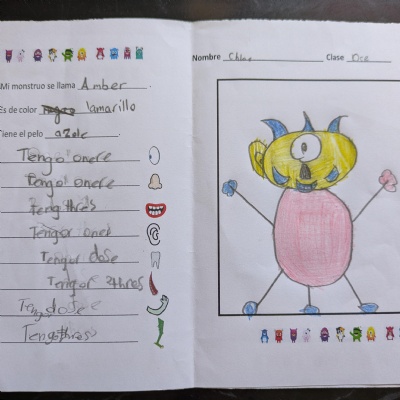 Mi monstruo se llama Amber.
Es de color lamarillo
Tiene el pelo azole.
Tengo onere
Tengo onere
Teng thres
Tengor oner
Tengor dose
Tengor thres
Teng dose
Teng thras
Nombre Clase